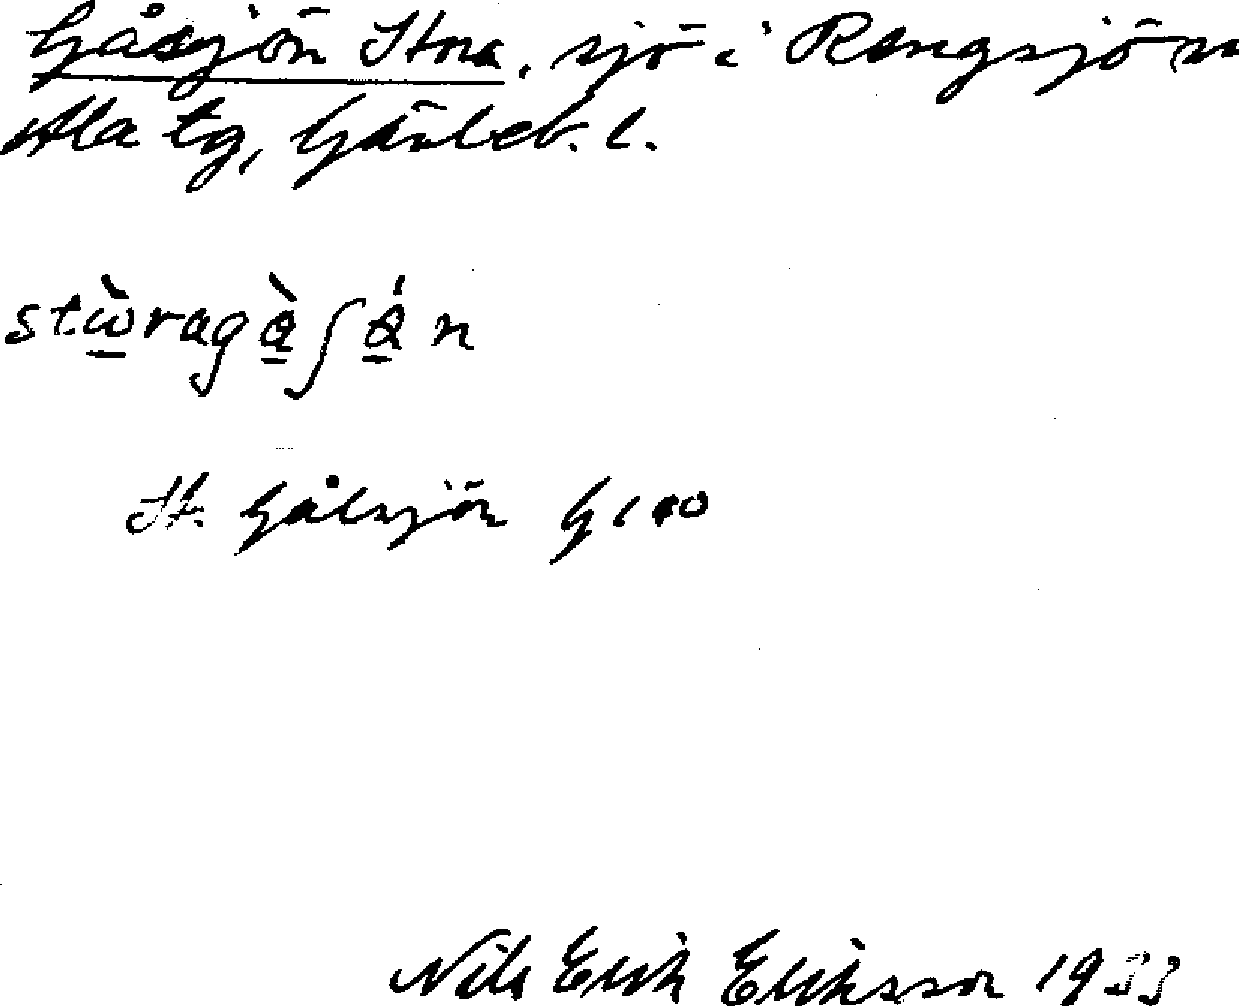 Gåsjön Stora, sjö i Rengsjö sn
Ala tg, Gävleb. l.
stὼragàʃǿn
St. Gålsjön G 100
Nils Erik Eriksson 1933